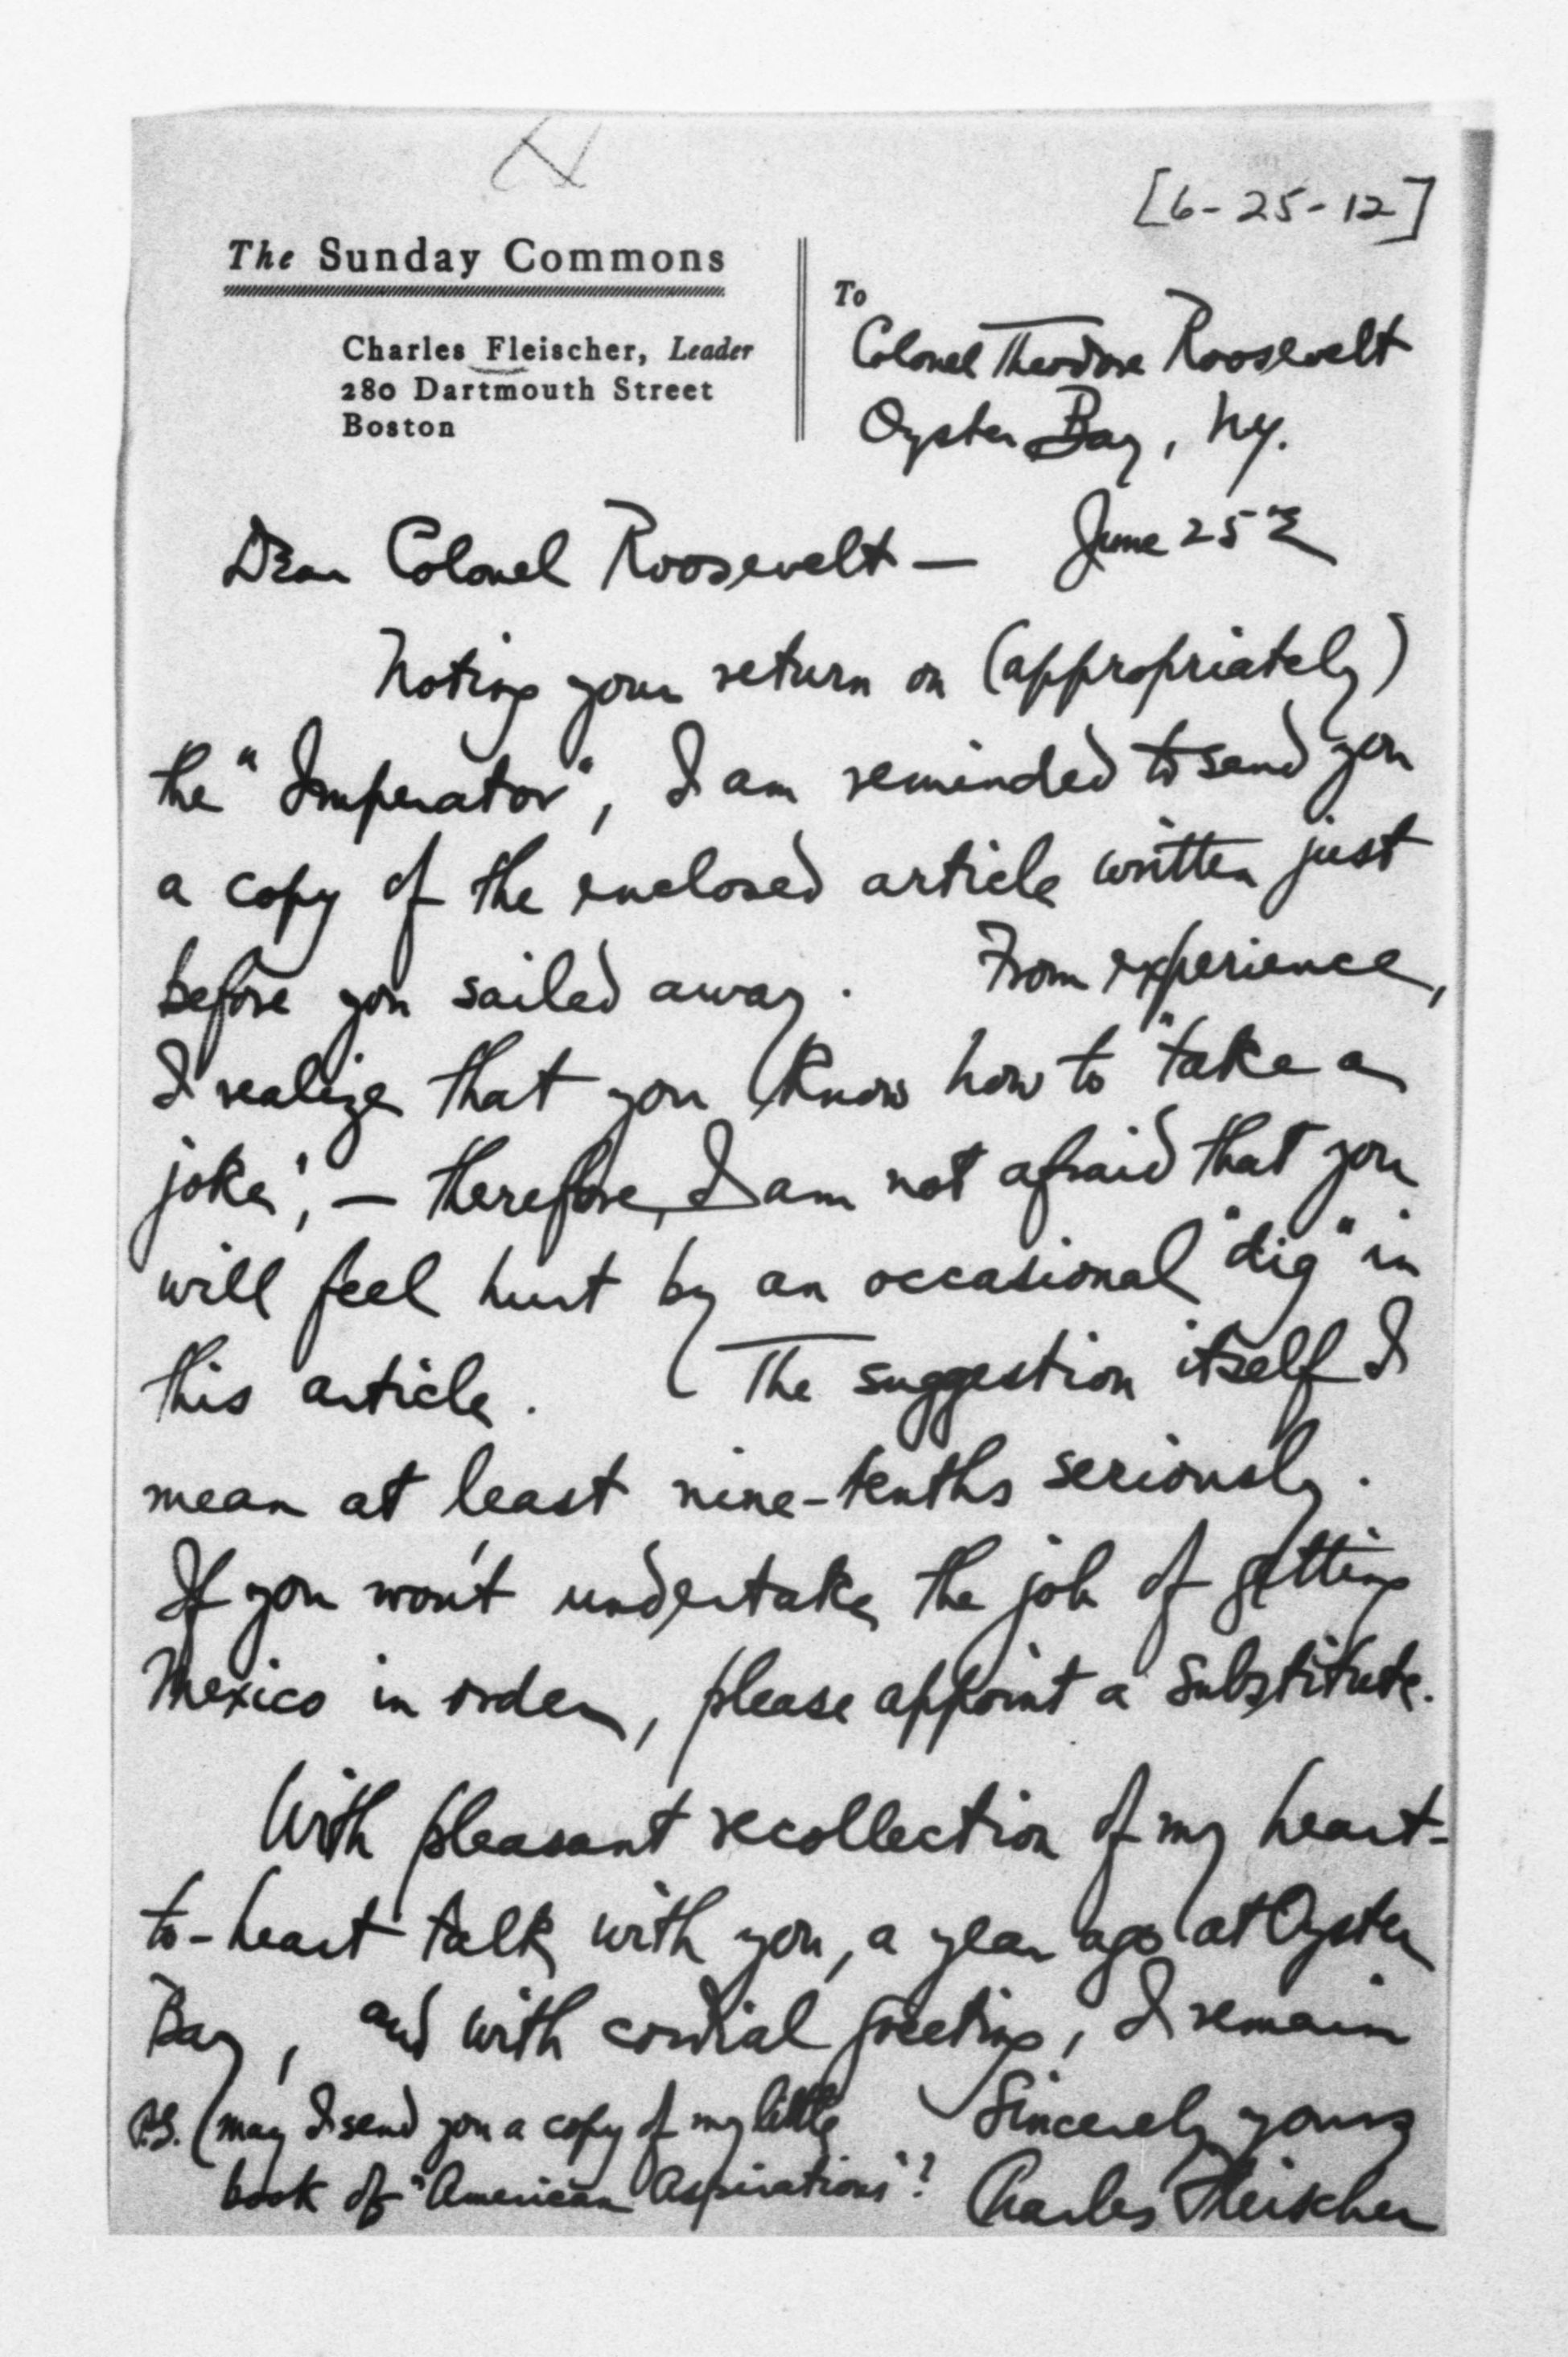 [6-25-12]
The Sunday Commons
Charles Fleischer, Leader
280 Dartmouth Street
Boston
To
Colonel Theodore Roosevelt
Oyster Bay, N.Y.
June 25th
Dear Colonel Roosevelt —
Noting your return on (appropriately)
the "Imperator", I am reminded to send you
a copy of the enclosed article written just
before you sailed away. From experience,
I realize that you know how to "take a
joke", — therefore, I am not afraid that you
will feel hurt by an occasional "dig" in
this article. The suggestion itself I
mean at least nine-tenths seriously.
If you won't undertake the job of getting
Mexico in order, please appoint a substitute.
With pleasant recollection of my heart-
to-heart talk with you, a year ago at Oyster
Bay, and with cordial greeting, I remain
Sincerely yours
Charles Fleischer
P.S. (may I send you a copy of my little
book of "American Aspirations"?